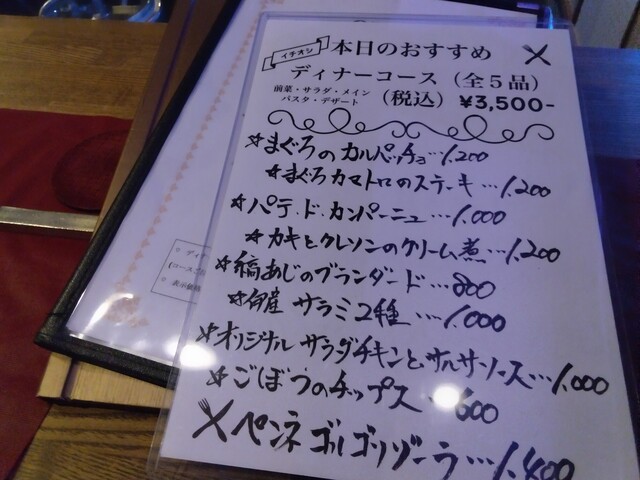 イチオシ 本日のおすすめ
ディナーコース (全5品)
前菜・サラダ・メイン
パスタ・デザート (税込) ¥3,500-
☆まぐろのカルパッチョ…1,200
☆まぐろカマトロのステーキ…1,200
☆パテ・ド・カンパーニュ…1,000
☆カキとクレソンのクリーム煮…1,200
☆縞あじのブランダード…800
☆伊産 サラミ2種…1,000
☆オリジナル サラダチキンとサルサソース…1,000
☆ごぼうのチップス…600
ペンネ ゴルゴンゾーラ…1,400